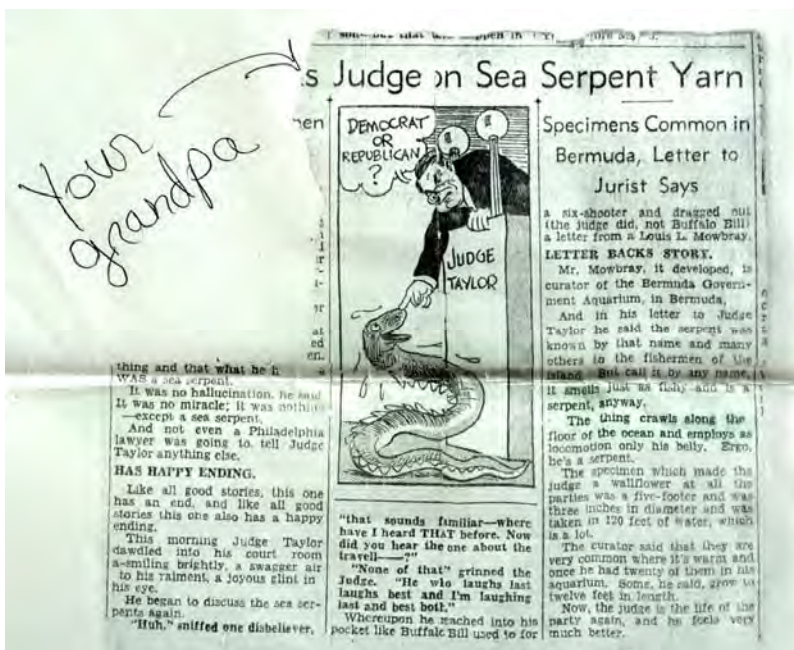 Your
grandpa
s Judge on Sea Serpent Yarn
DEMOCRAT
OR
REPUBLICAN
?
JUDGE
TAYLOR
thing and that what he h
WAS a sea serpent.
It was no hallucination, he said
It was no miracle; it was nothing
—except a sea serpent.
And not even a Philadelphia
lawyer was going to tell Judge
Taylor anything else.
HAS HAPPY ENDING.
Like all good stories, this one
has an end, and like all good
stories this one also has a happy
ending.
This morning Judge Taylor
dawdled into his court room
a-smiling brightly, a swagger air
to his raiment, a joyous glint in
his eye.
He began to discuss the sea ser-
pents again.
"Huh," sniffed one disbeliever,
"that sounds familiar—where
have I heard THAT before. Now
did you hear the one about the
travell——?"
"None of that" grinned the
Judge. "He who laughs last
laughs best and I'm laughing
last and best both."
Whereupon he reached into his
pocket like Buffalo Bill used to for
Specimens Common in
Bermuda, Letter to
Jurist Says
a six-shooter and dragged out
(the judge did, not Buffalo Bill)
a letter from a Louis L. Mowbray.
LETTER BACKS STORY.
Mr. Mowbray, it developed, is
curator of the Bermuda Govern-
ment Aquarium, in Bermuda.
And in his letter to Judge
Taylor he said the serpent was
known by that name and many
others to the fishermen of the
island. But call it by any name,
it smells just as fishy and is a
serpent, anyway.
The thing crawls along the
floor of the ocean and employs as
locomotion only his belly. Ergo,
he's a serpent.
The specimen which made the
judge a wallflower at all the
parties was a five-footer and was
three inches in diameter and was
taken in 120 feet of water, which
is a lot.
The curator said that they are
very common where it's warm and
once he had twenty of them in his
aquarium. Some, he said, grow to
twelve feet in length.
Now, the judge is the life of the
party again, and he feels very
much better.